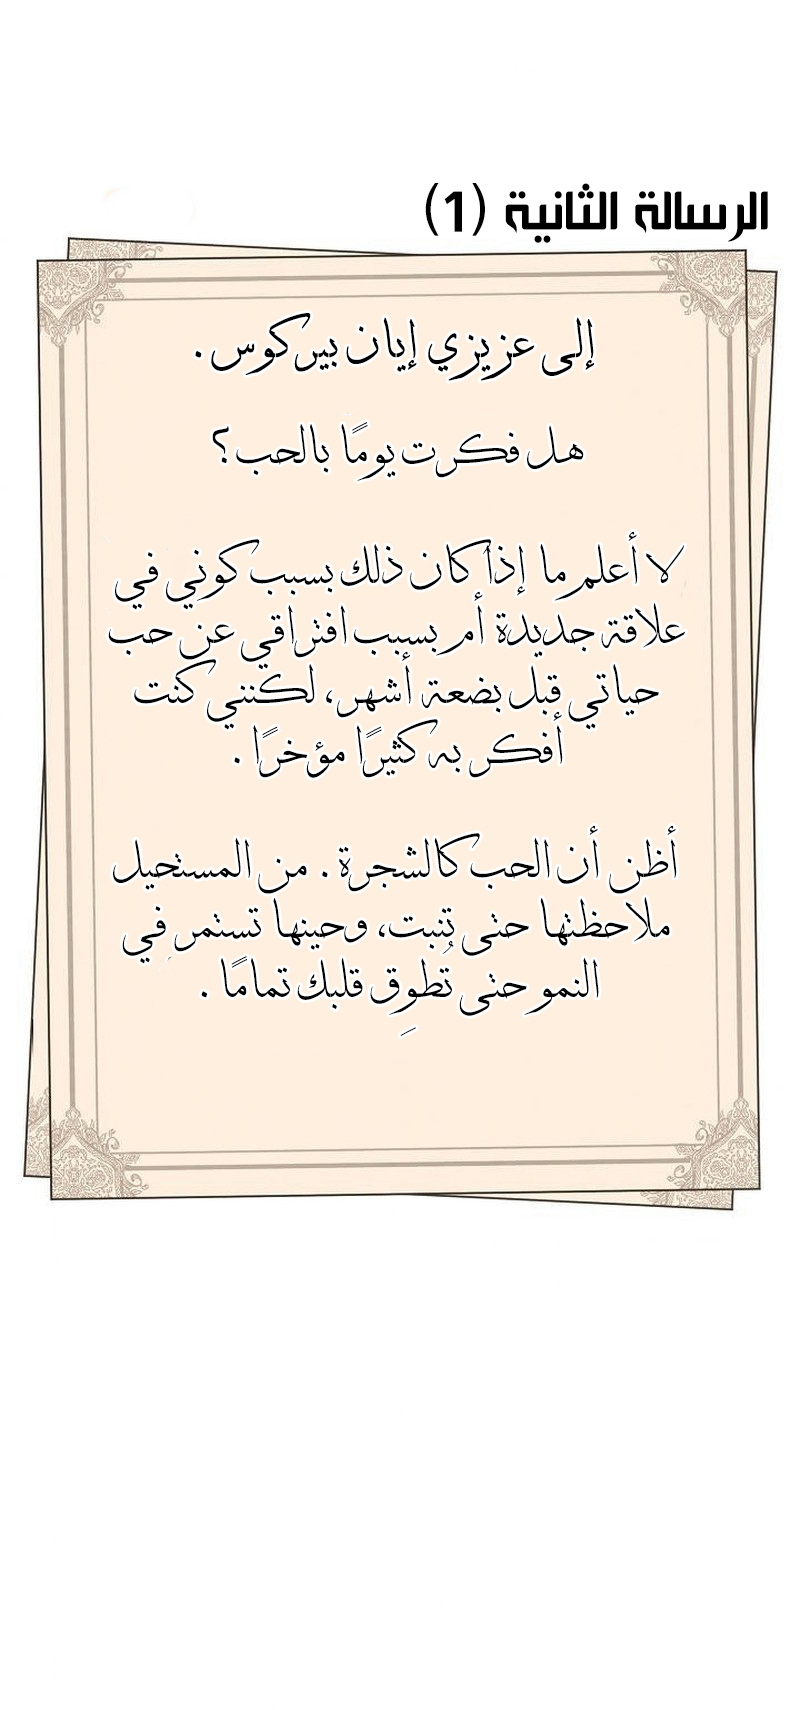 الرسالة الثانية (1)
إلى عزيزي إيان بيركوس.
هل فكرت يومًا بالحب؟
لا أعلم ما إذا كان ذلك بسبب كوني في
علاقة جديدة أم بسبب افتراقي عن حب
حياتي قبل بضعة أشهر، لكنني كنت
أفكر به كثيرًا مؤخرًا.
أظن أن الحب كالشجرة. من المستحيل
ملاحظتها حتى تنبت، وحينها تستمر في
النمو حتى تُطوِق قلبك تمامًا.